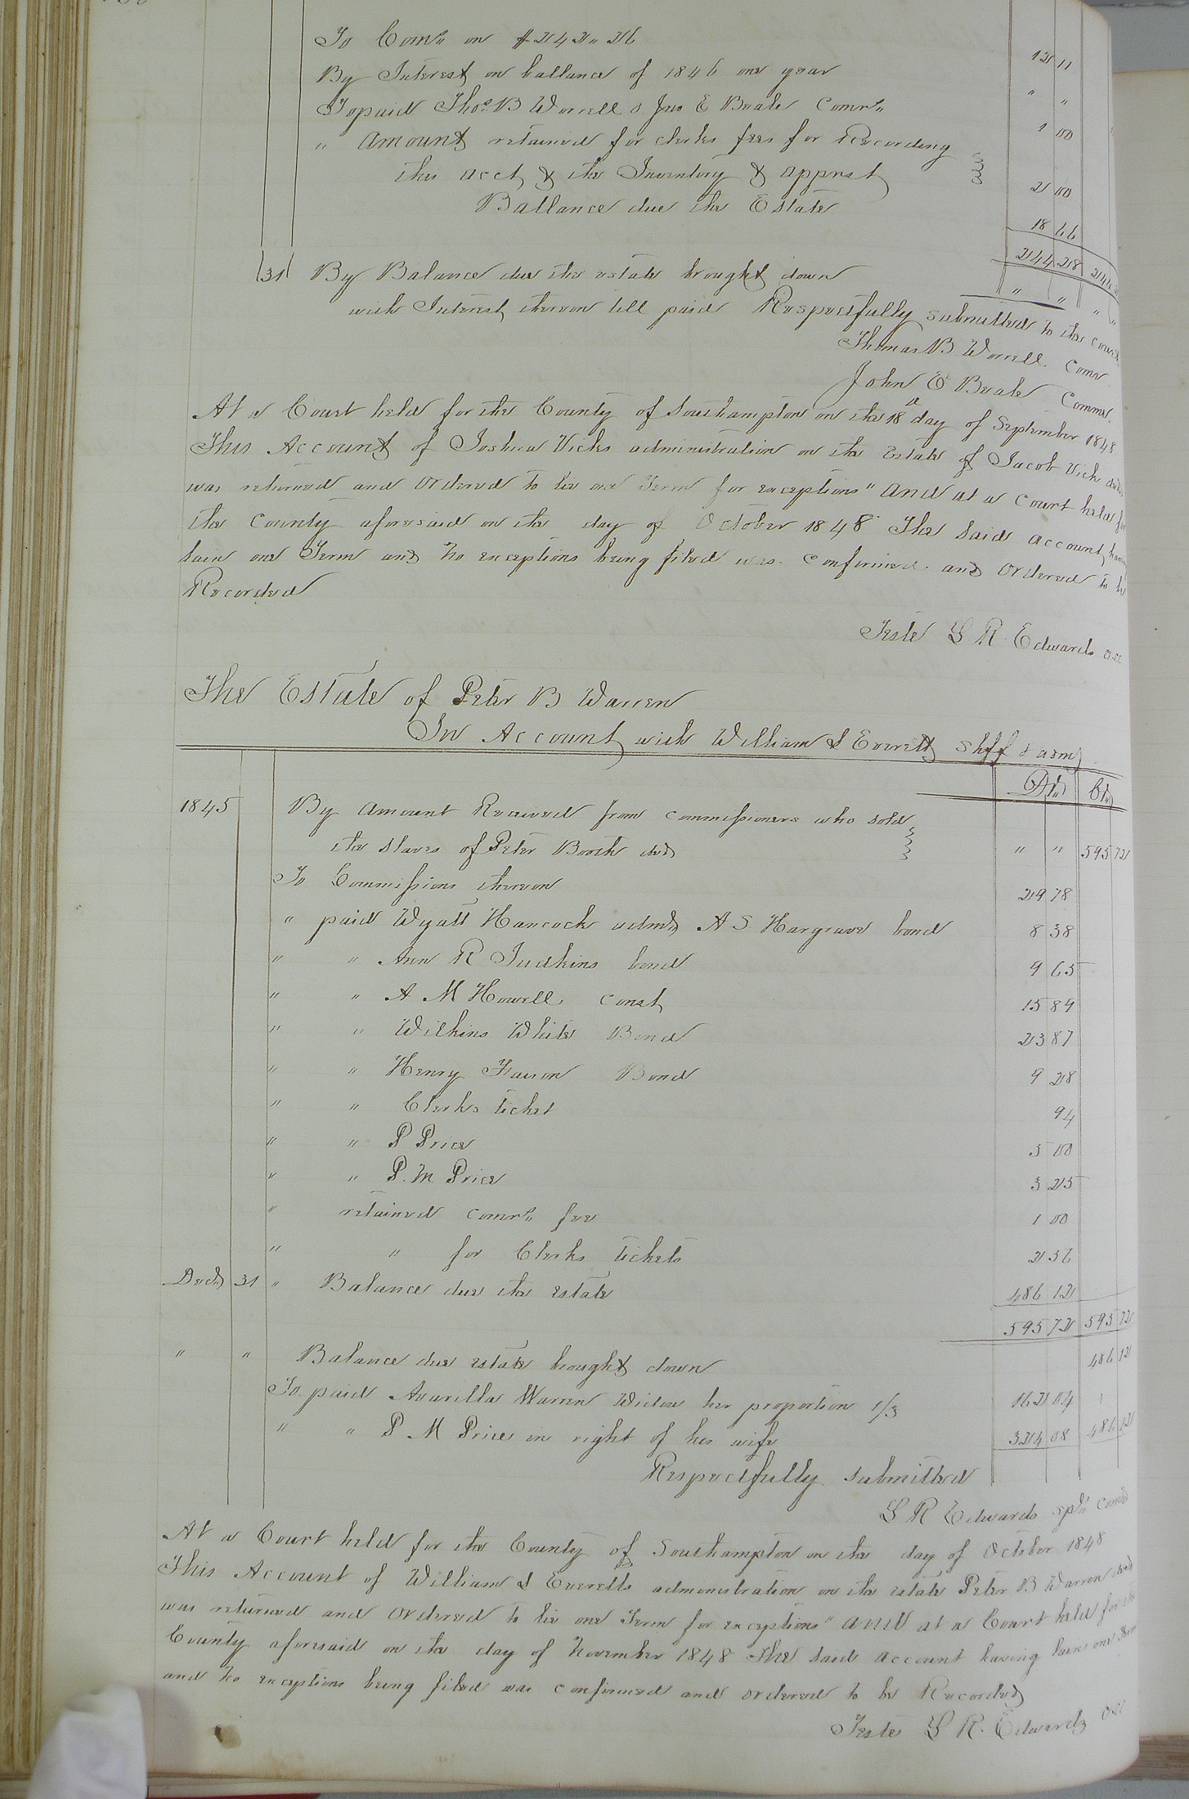 To Com.n on $242.26 12 11
By Interest on ballance of 1846 one year " "
To paid Thos. B Worrell & Jno E Beale Comrs 1 00
" Amount retained for clerks fees for Recording
this acct, & the Inventory & apprst, 2 00
Ballance due the Estate 18 66
244 28
31 By Balance due the estate brought down " "
with Interest thereon till paid Respectfully submitted to the court
Thomas B Worrell Comr
John E Beale Commr.
At a Court held for the County of Southampton on the 18th day of September 1848
This Account of Joshua Vicks administration on the Estate of Jacob Vick decd
was returned and Ordered to lie one Term for exceptions" And at a Court held for
the County aforesaid on the day of October 1848 The said account, having
lain one Term and no exceptions being filed was confirmed and Ordered to be
Recorded
Teste L R Edwards
The Estate of Peter B Warren
In Account, with William S Everett Shff & adm
Dr Cr
1845 By Amount Received from commissioners who sold
the slaves of Peter Booth decd " " 595 72
To Commissions thereon 29 78
" paid Wyatt Hancock admr A S Hargrave bond 8 38
" " Ann R Judkins bond 9 65
" " A M Howell, const, 15 89
" " Wilkins White Bond 23 87
" " Henry Faison Bond 9 28
" " Clerks ticket 94
" " P Price 5 00
" " P. M Price 3 25
" retained comrs fee 1 00
" " for Clerks tickets 2 56
Decr 31 " Balance due the estate 486 12
595 72 595 72
" " Balance due estate brought down 486 12
To paid Avarilla Warren Widow her proportion 1/3 162 04
" " P M Price in right of his wife 324 08 486 12
Respectfully submitted
L R Edwards spl comr
At a Court held for the County of Southampton on the day of October 1848
This Account of William S Everetts administration on the estate Peter B Warren decd
was returned and Ordered to lie one Term for exceptions" And at a Court held for the
County aforesaid on the day of November 1848 The said account having lain one Term
and no exceptions being filed was confirmed and ordered to be Recorded
Teste L R. Edwards